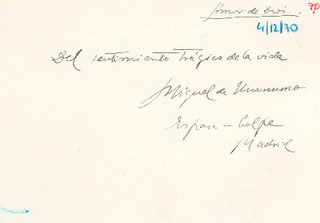 Amor de Dios.
70
4/12/70
Del sentimiento trágico de la vida
Miguel de Unamuno
Espasa-Calpe
Madrid